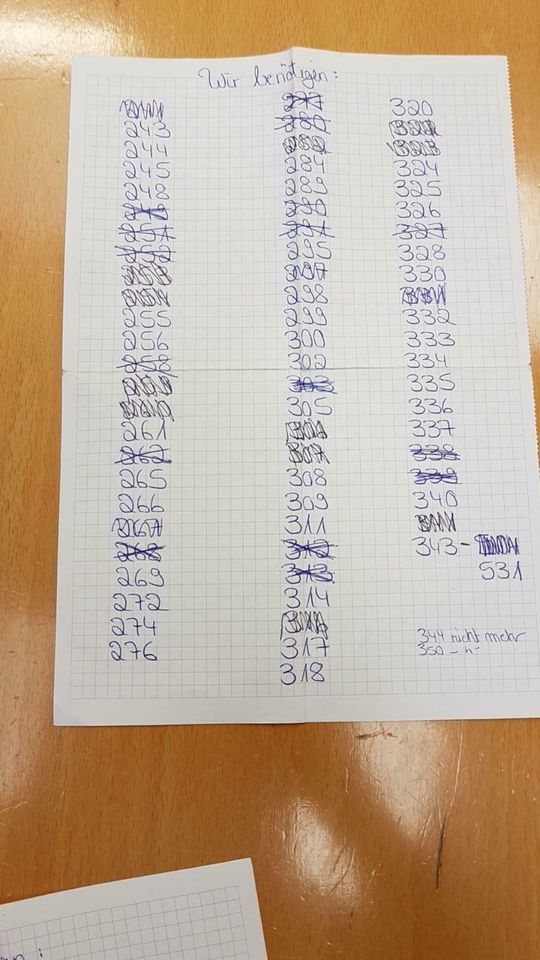 Wir benötigen:
243
244
245
248
251
252
255
256
258
261
262
265
266
267
268
269
272
274
276
277
280
282
284
289
290
291
295
297
298
299
300
302
303
305
307
308
309
311
312
313
314
317
318
320
323
324
325
326
327
328
330
332
333
334
335
336
337
338
339
340
343 -
531
344 nicht mehr
350 - " -